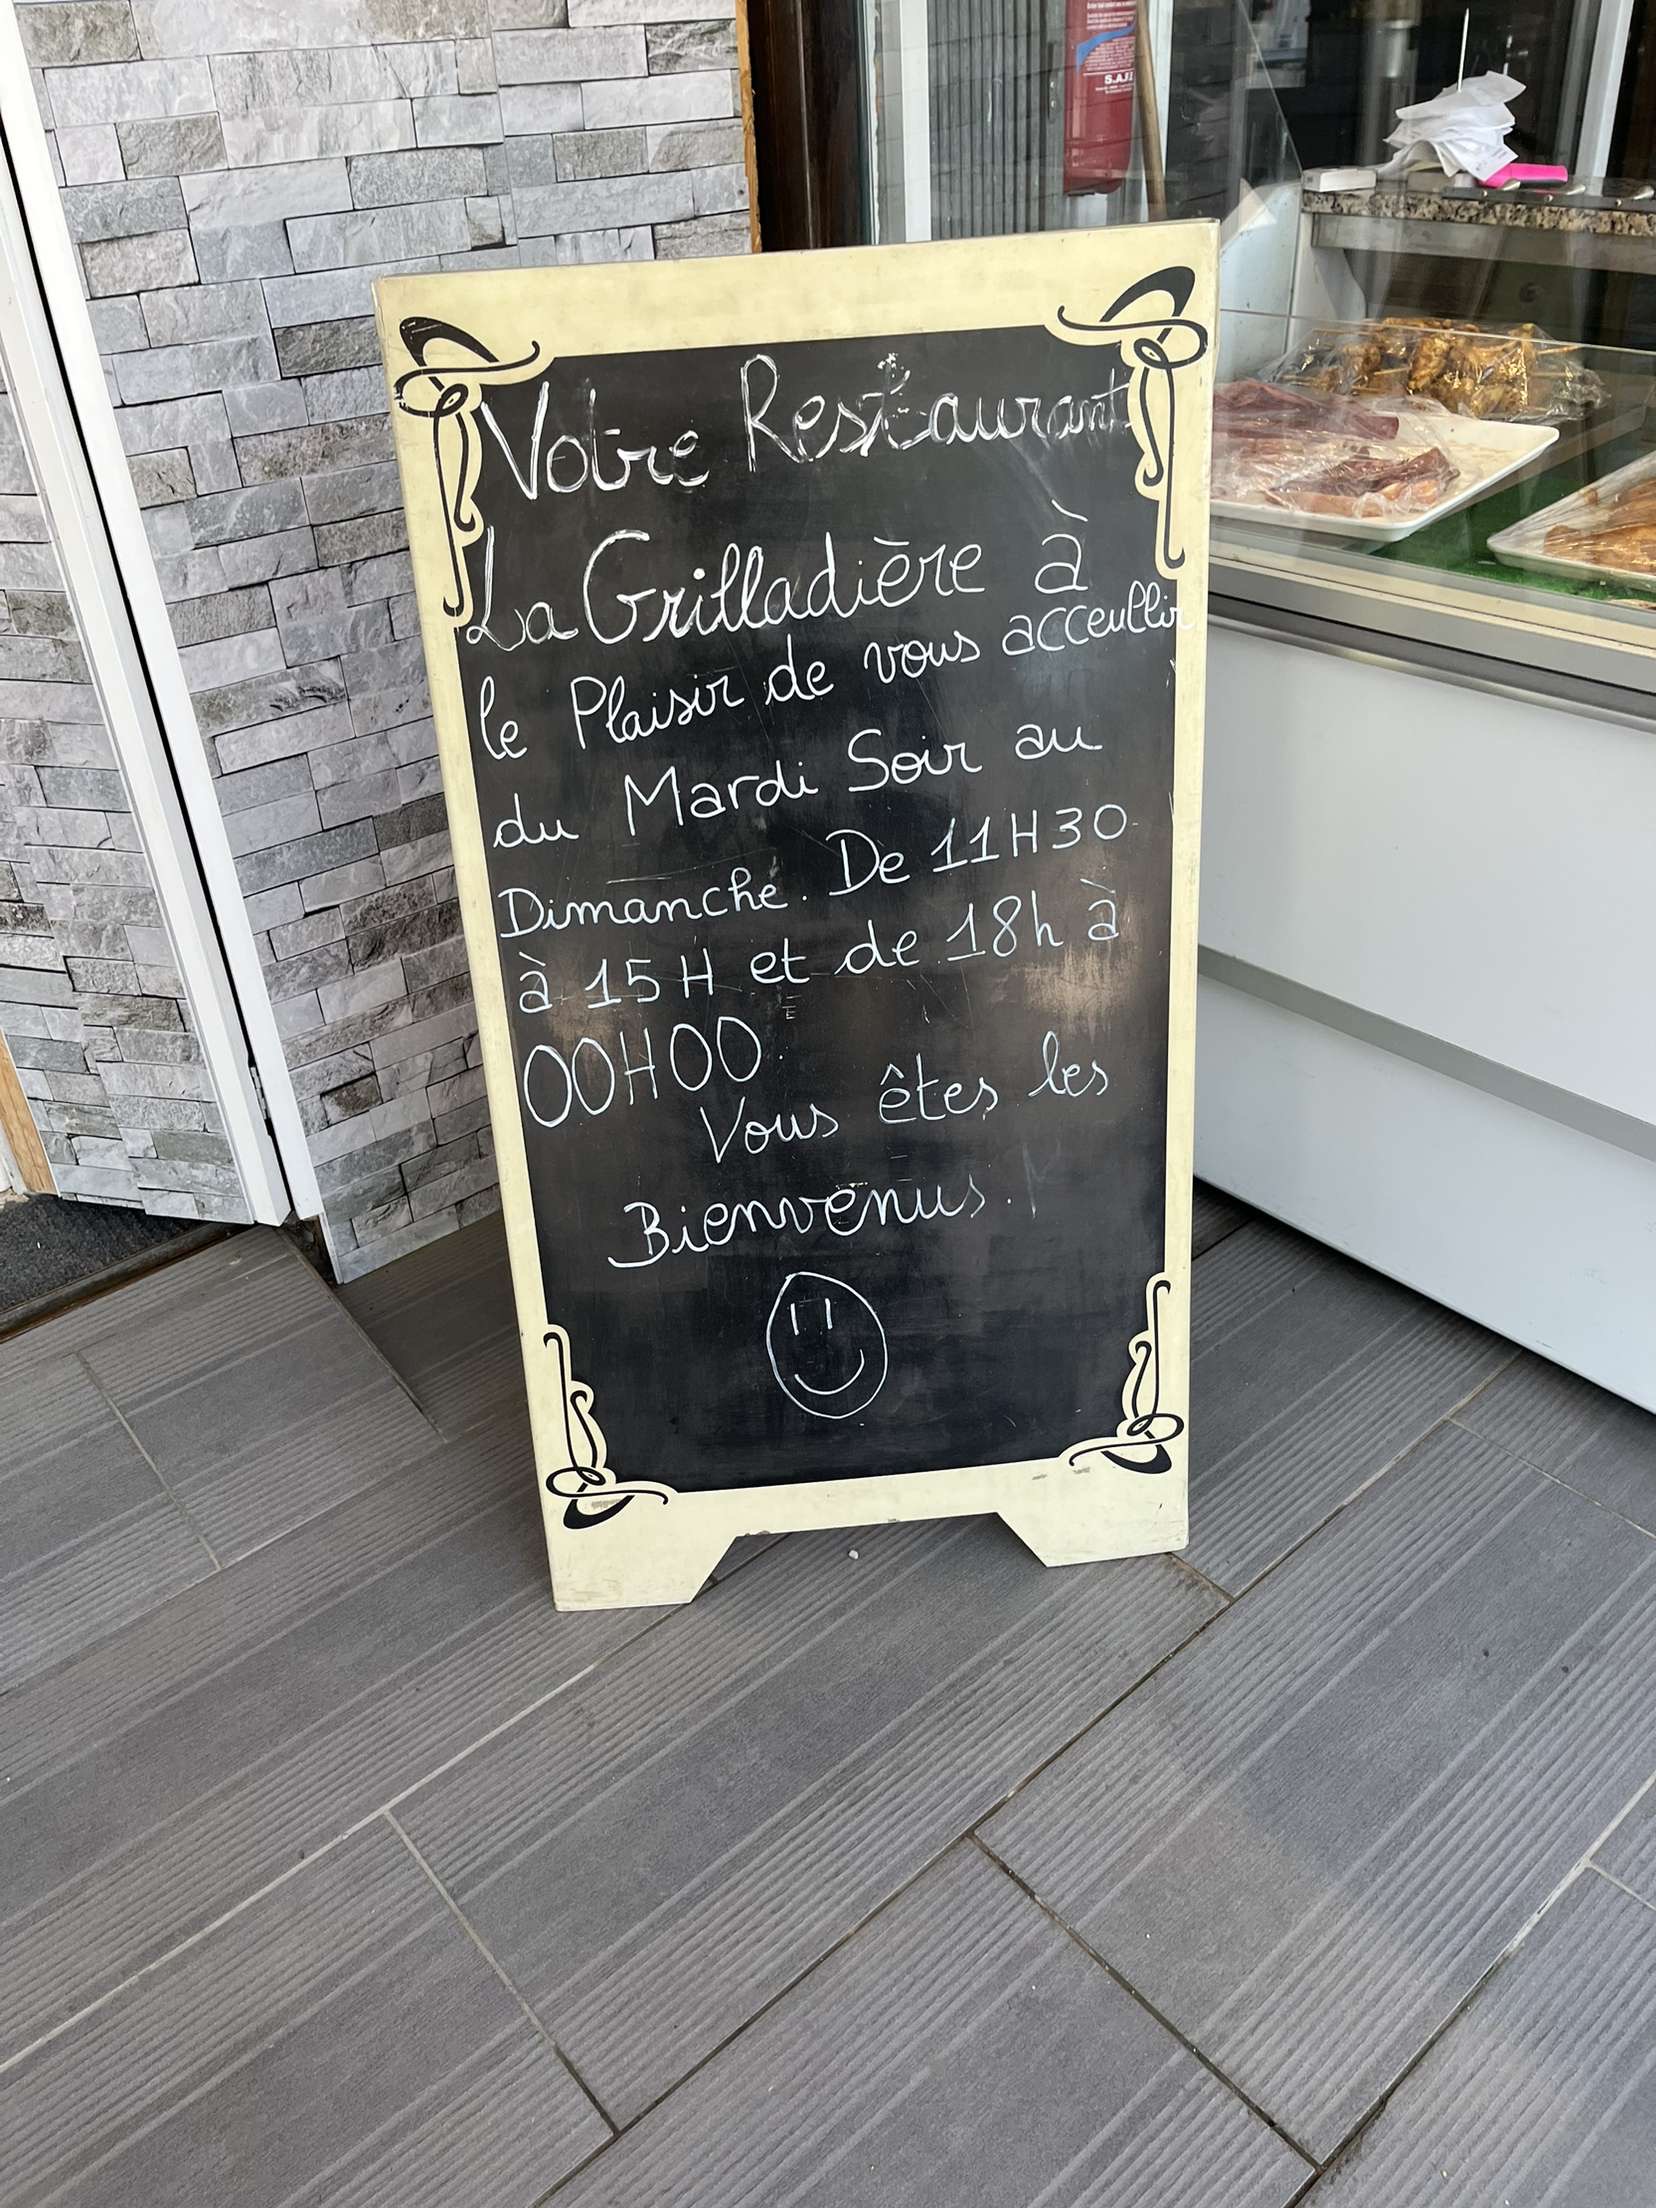 Votre Restaurant
La Grilladière à
le Plaisir de vous acceullir
du Mardi Soir au
Dimanche. De 11H30
à 15H et de 18h à
00H00.
Vous êtes les
Bienvenus.
S.A.F.I